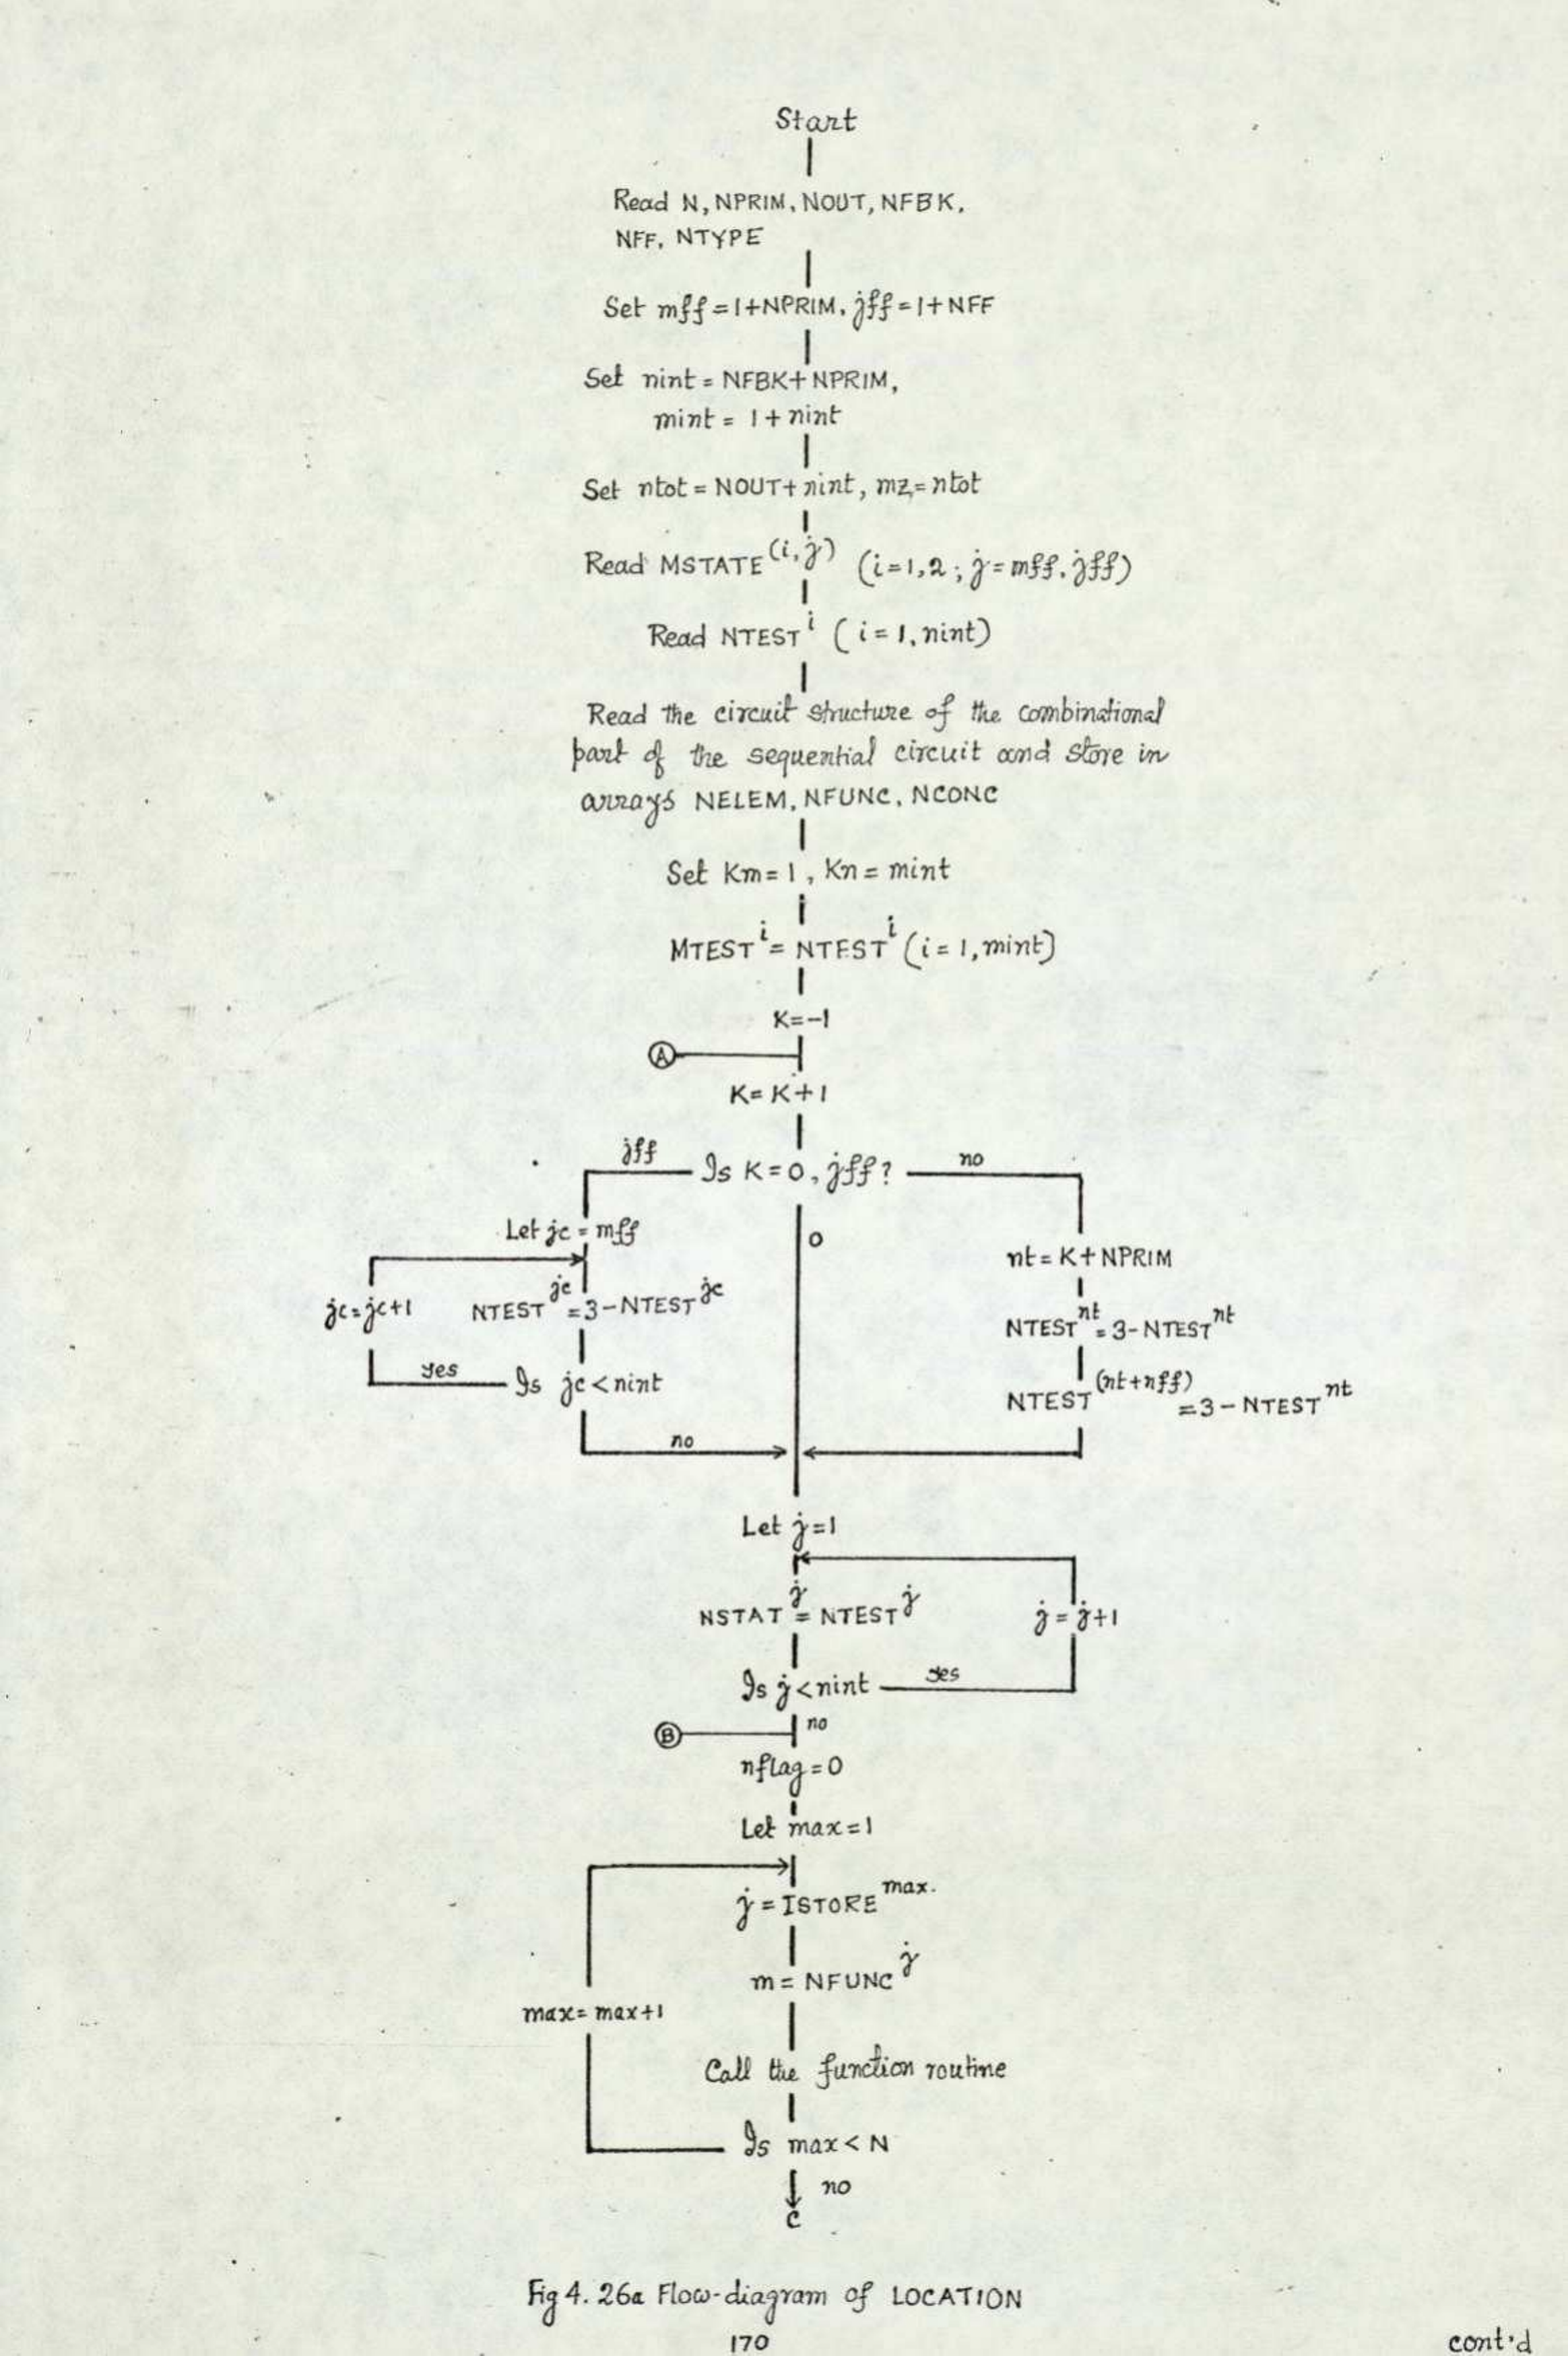 Start
Read N, NPRIM, NOUT, NFBK,
NFF, NTYPE
Set mff = 1+NPRIM, jff = 1+NFF
Set nint = NFBK+NPRIM,
mint = 1+nint
Set ntot = NOUT+nint, mz = ntot
Read MSTATE(i,j) (i=1,2; j=mff, jff)
Read NTEST i (i=1, nint)
Read the circuit structure of the combinational
part of the sequential circuit and store in
arrays NELEM, NFUNC, NCONC
Set Km=1, Kn=mint
MTEST i = NTEST i (i=1, mint)
K=-1
A
K=K+1
jff Is K=0, jff? no
Let jc = mff
0
nt = K+NPRIM
jc=jc+1 NTEST jc = 3-NTEST jc
NTEST nt = 3-NTEST nt
yes Is jc<nint
NTEST (nt+nff) = 3-NTEST nt
no
Let j=1
NSTAT j = NTEST j
j=j+1
Is j<nint yes
B no
nflag=0
Let max=1
j=ISTORE max.
m=NFUNC j
max=max+1
Call the function routine
Is max<N
no
C
Fig 4.26a Flow-diagram of LOCATION
170
cont'd